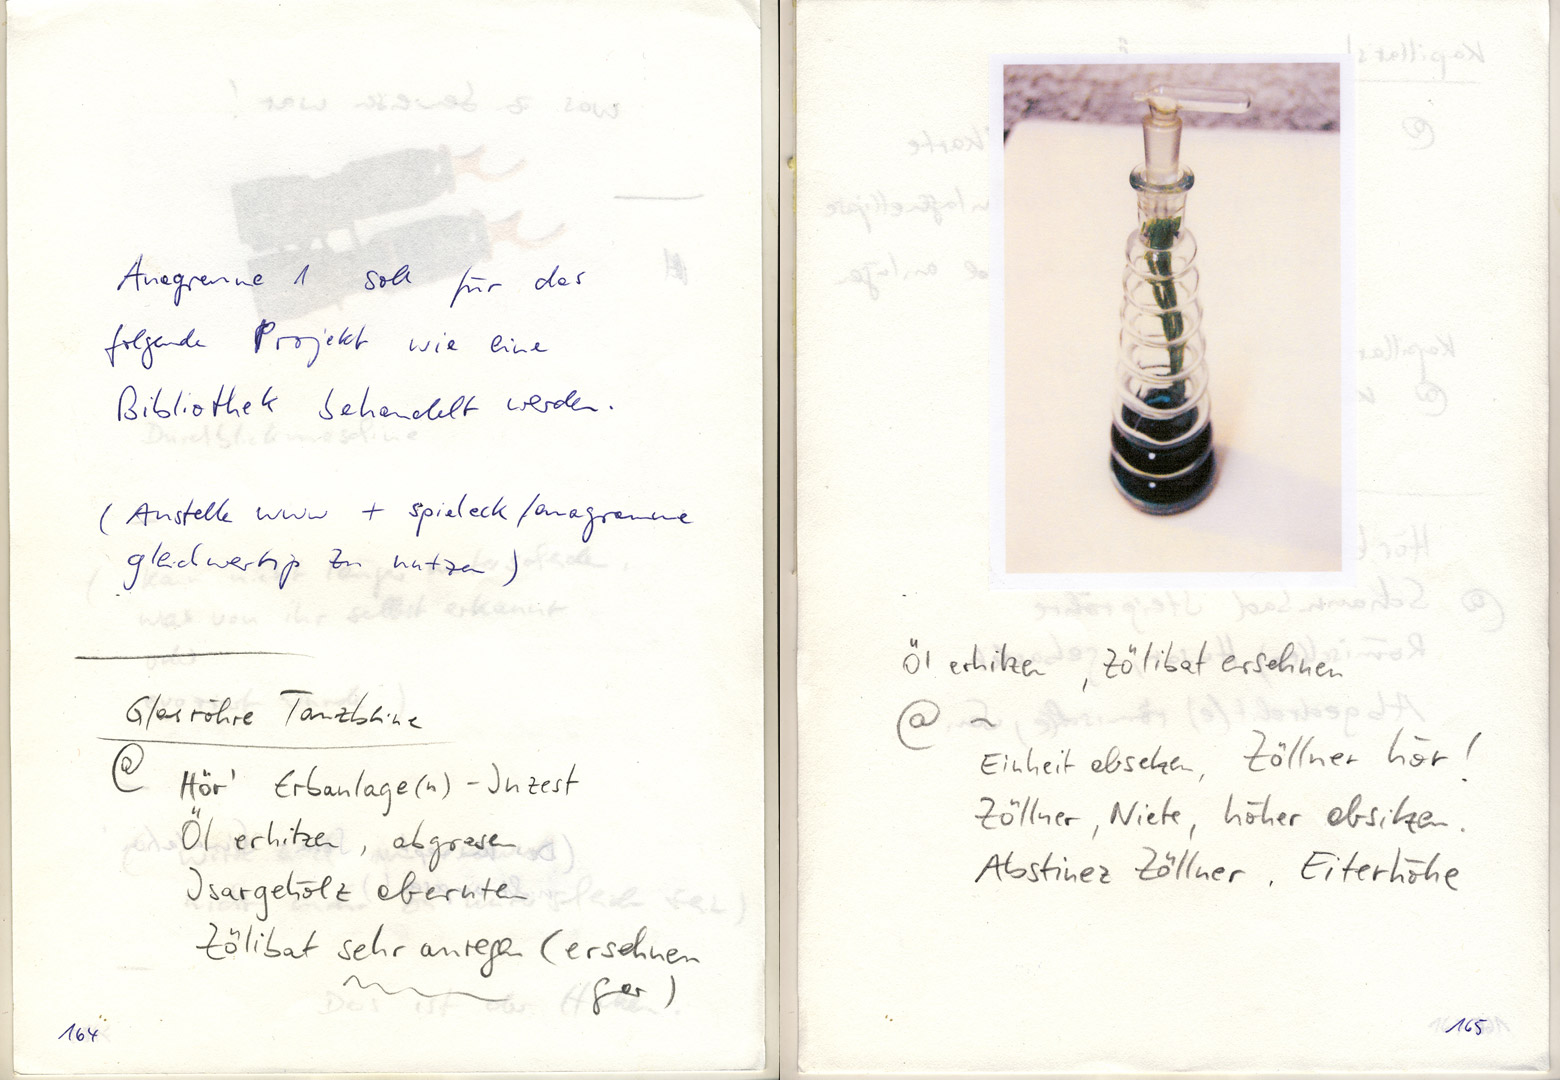 Anagramme 1 soll für das
folgende Projekt wie eine
Bibliothek behandelt werden.
(Anstelle www + spieleck/anagramme
gleichwertig zu nutzen)
Glasröhre Tanzbühne
@
Hör' Erbanlage(n) - Inzest
Öl erhitzen, abgrasen
Isargehölz abernten
Zölibat sehr anregen (ersehnen
gar)
164
Öl erhitzen, Zölibat ersehnen
@ ~
Einheit absetzen, Zöllner hör!
Zöllner, Niete, höher absitzen.
Abstinez Zöllner, Eiterhöhe
165